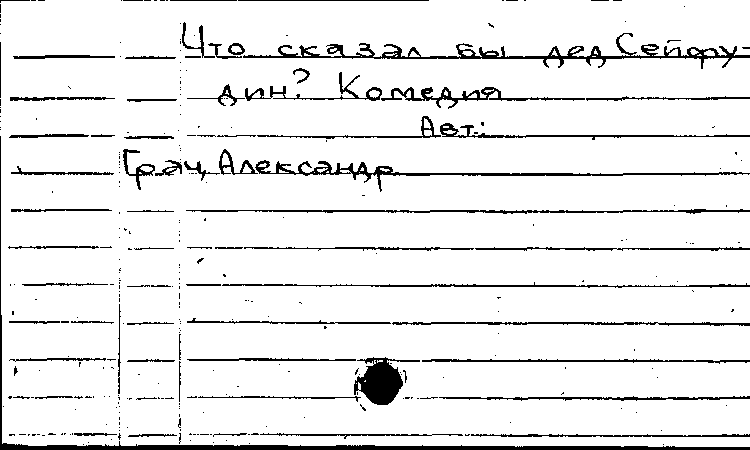 Что сказал бы дед Сейфу-
дин? Комедия
Авт.:
Грач, Александр